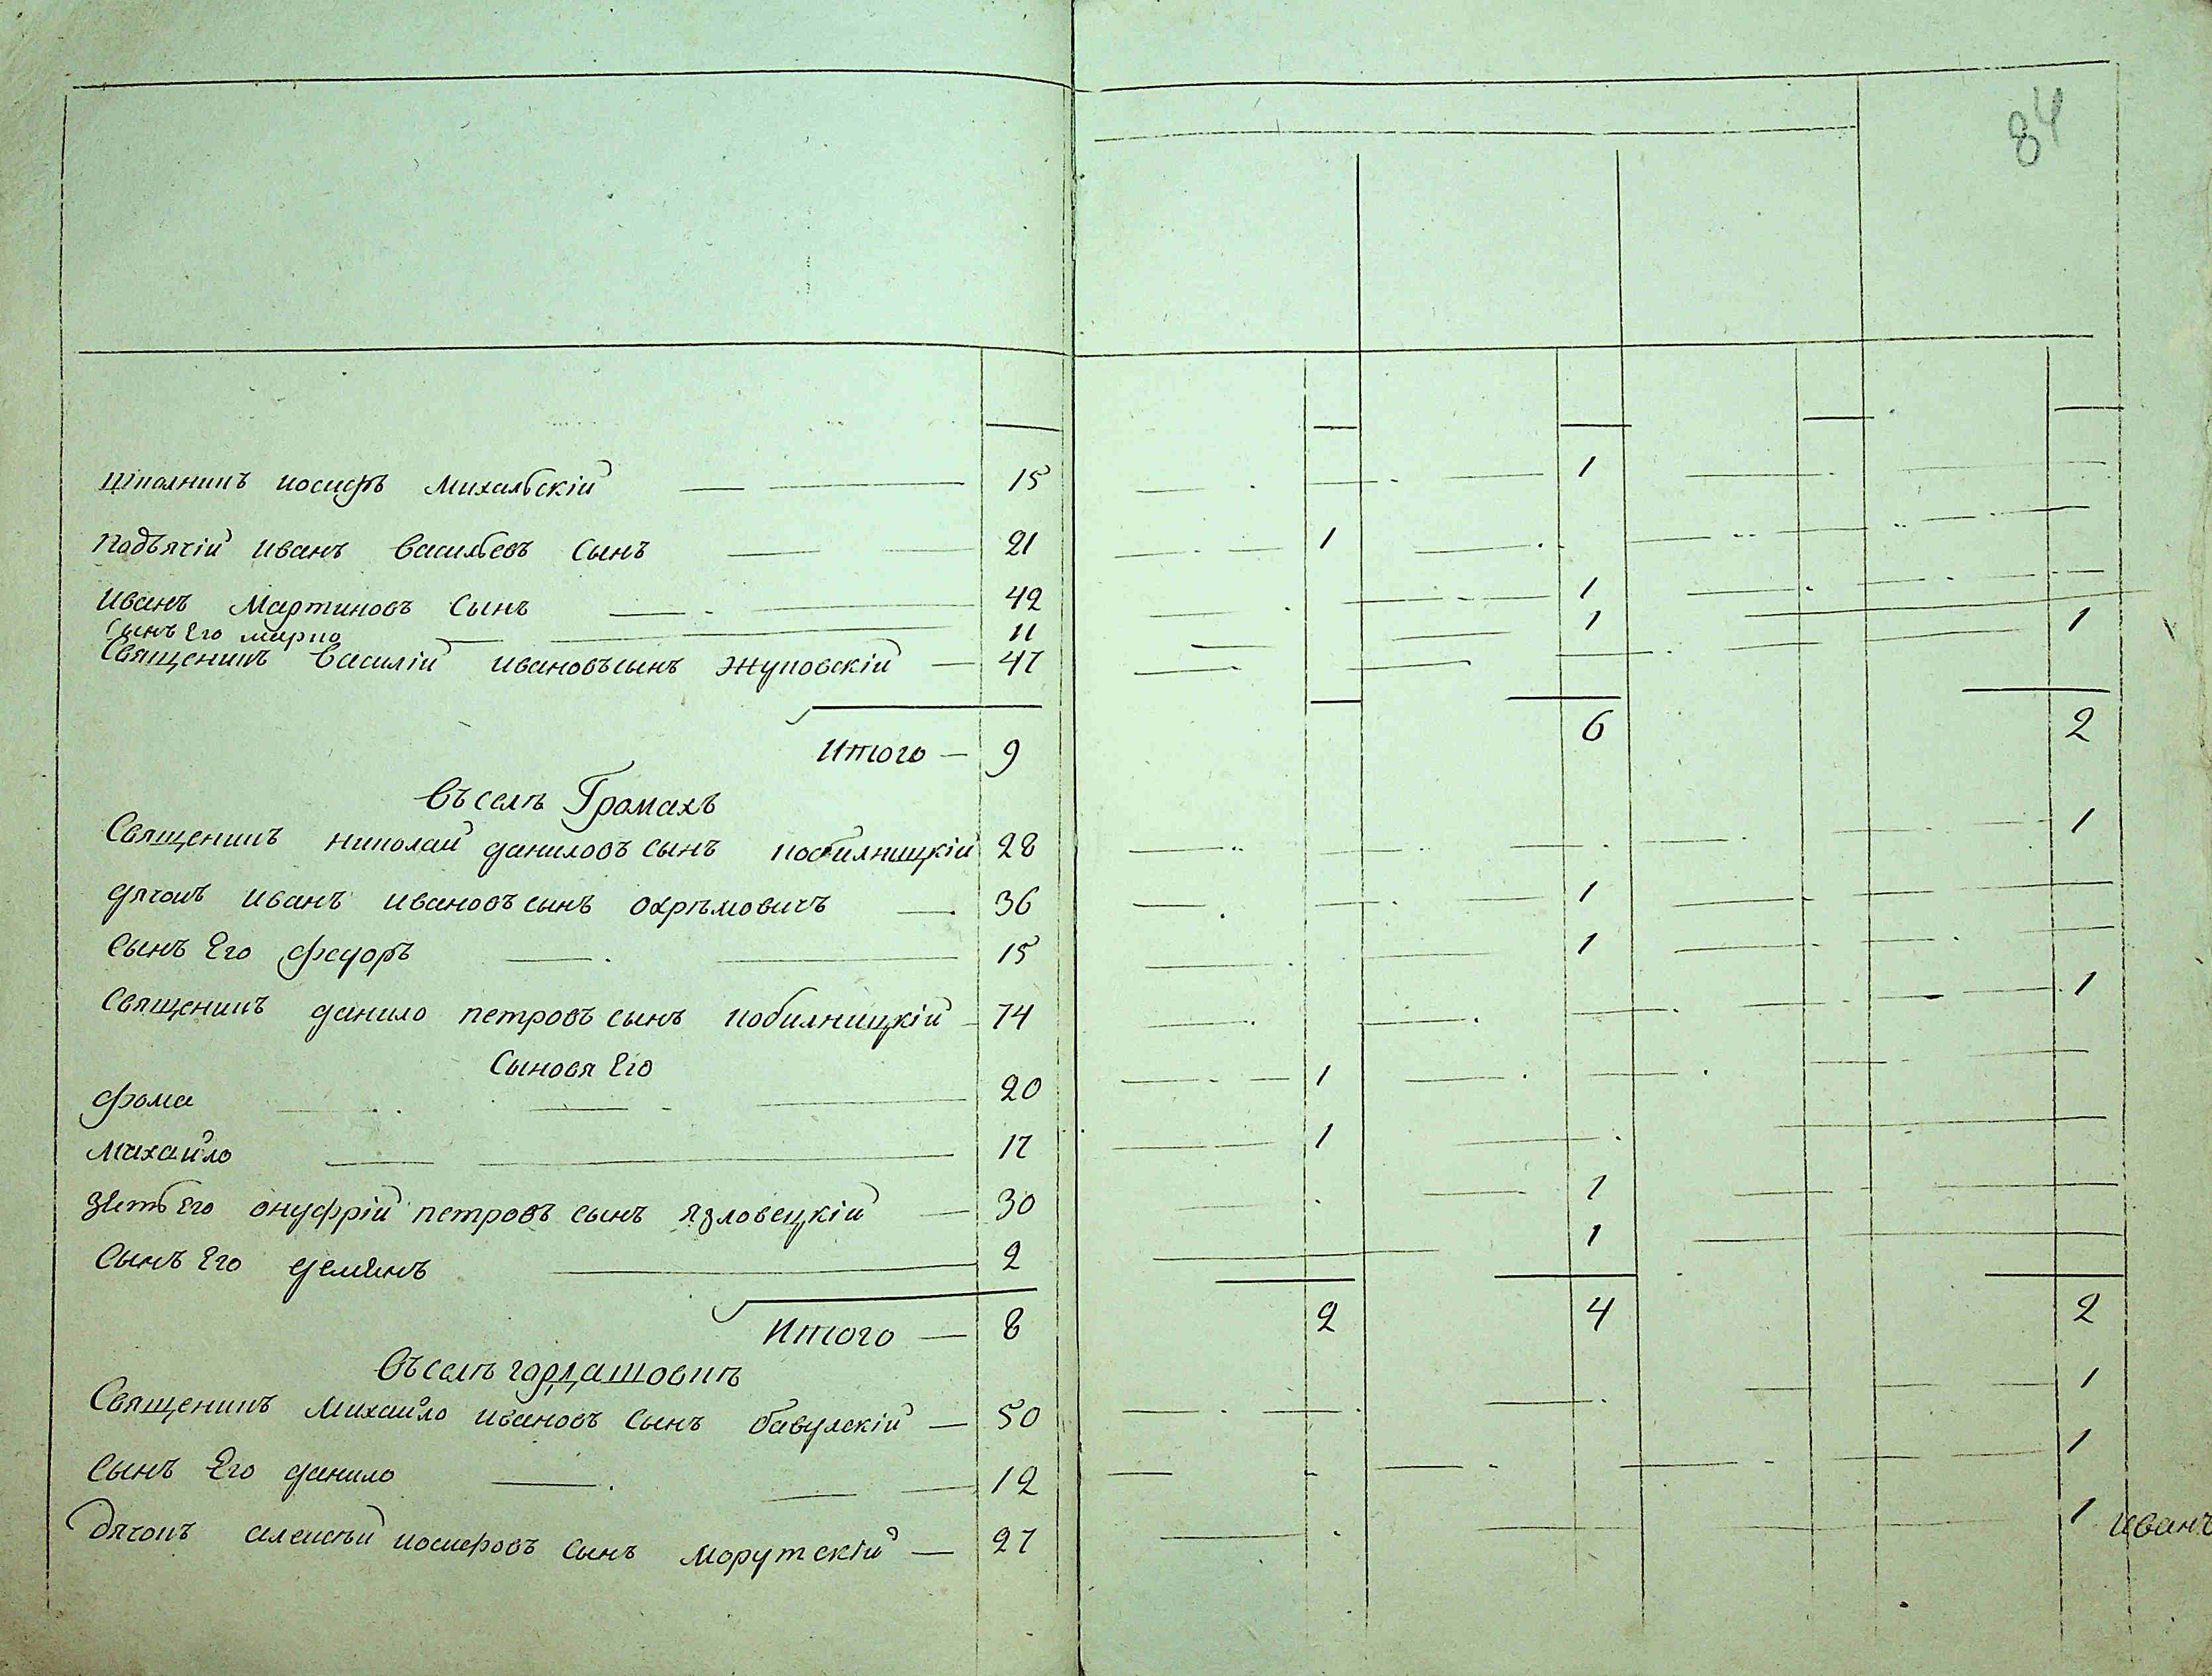 84
школникъ иосифъ михалвскій 15 1
подъячій иванъ васильевъ сынъ 21 1
иванъ мартиновъ сынъ 42 1
сынъ его марко 11 1 1
священикъ василій ивановъ сынъ жуковскій 47
Итого 9 6 2
въ селѣ Громахъ
священикъ николай даниловъ сынъ кобилницкій 28 1
дячокъ иванъ ивановъ сынъ охрѣмовичъ 36 1
сынъ его федоръ 15 1
священикъ данило петровъ сынъ кобилницкій 74 1
сыновя его
фома 20 1
михайло 17 1
зять его онуфрій петровъ сынъ язловецкій 30 1
сынъ его демянъ 2 1
Итого 8 2 4 2
въ селѣ гордашовкѣ
священикъ михайло ивановъ сынъ бавулскій 50 1
сынъ его данило 12 1
дячокъ алексѣй иосифовъ сынъ морутскій 27 1
иванъ